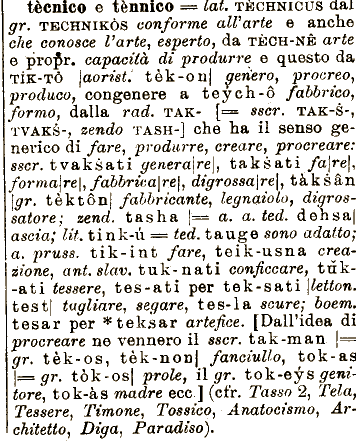 tècnico e tènnico = lat. TÈCHNICUS dal
gr. TECHNIKÒS conforme all'arte e anche
che conosce l'arte, esperto, da TÈCH-NÊ arte
e propr. capacità di produrre e questo da
TÍK-TÔ |aorist. tèk-on| genero, procreo,
produco, congenere a teỳch-ô fabbrico,
formo, dalla rad. TAK- [= sscr. TAK-Ś-,
TVAKŚ-, zendo TASH-] che ha il senso ge-
nerico di fare, produrre, creare, procreare:
sscr. tvakśati genera|re|, takśati fa|re|,
forma|re|, fabbrica|re|, digrossa|re|, tàkśân
|gr. tèktôn| fabbricante, legnaiolo, digros-
satore; zend. tasha |= a. a. ted. dehsa|
ascia; lit. tink-ú = ted. tauge sono adatto;
a. pruss. tik-int fare, teik-usna crea-
zione, ant. slav. tuk-nati conficcare, tŭk-
-ati tessere, tes-ati per tek-sati |letton.
test| tagliare, segare, tes-la scure; boem.
tesar per *teksar artefice. [Dall'idea di
procreare ne vennero il sscr. tak-man |=
gr. tèk-os, tèk-non| fanciullo, tok-as
|= gr. tòk-os| prole, il gr. tok-eỳs geni-
tore, tok-às madre ecc.] (cfr. Tasso 2, Tela,
Tessere, Timone, Tossico, Anatocismo, Ar-
chitetto, Diga, Paradiso).